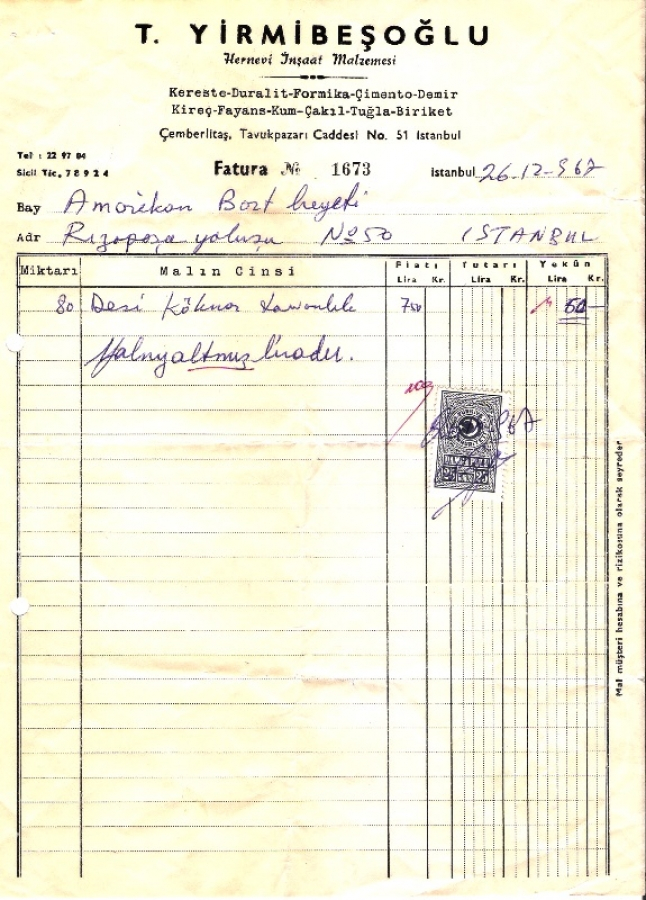 T. YİRMİBEŞOĞLU
Hernevi İnşaat Malzemesi
Kereste-Duralit-Formika-Çimento-Demir
Kireç-Fayans-Kum-Çakıl-Tuğla-Biriket
Çemberlitaş, Tavukpazarı Caddesi No. 51 İstanbul
Tel : 22 97 84
Sicil Tic. 78924
Fatura № 1673
İstanbul 26-12-967
Bay Amerikan Bort heyeti
Adr Rızapaşa yokuşu No 50 İSTANBUL
Miktarı Malın Cinsi Fiatı Tutarı Yekûn
Lira Kr. Lira Kr. Lira Kr.
80 Desi Köknar 750 60
Yalnız altmış liradır.
25 25
Mal müşteri hesabına ve rizikosuna olarak seyreder